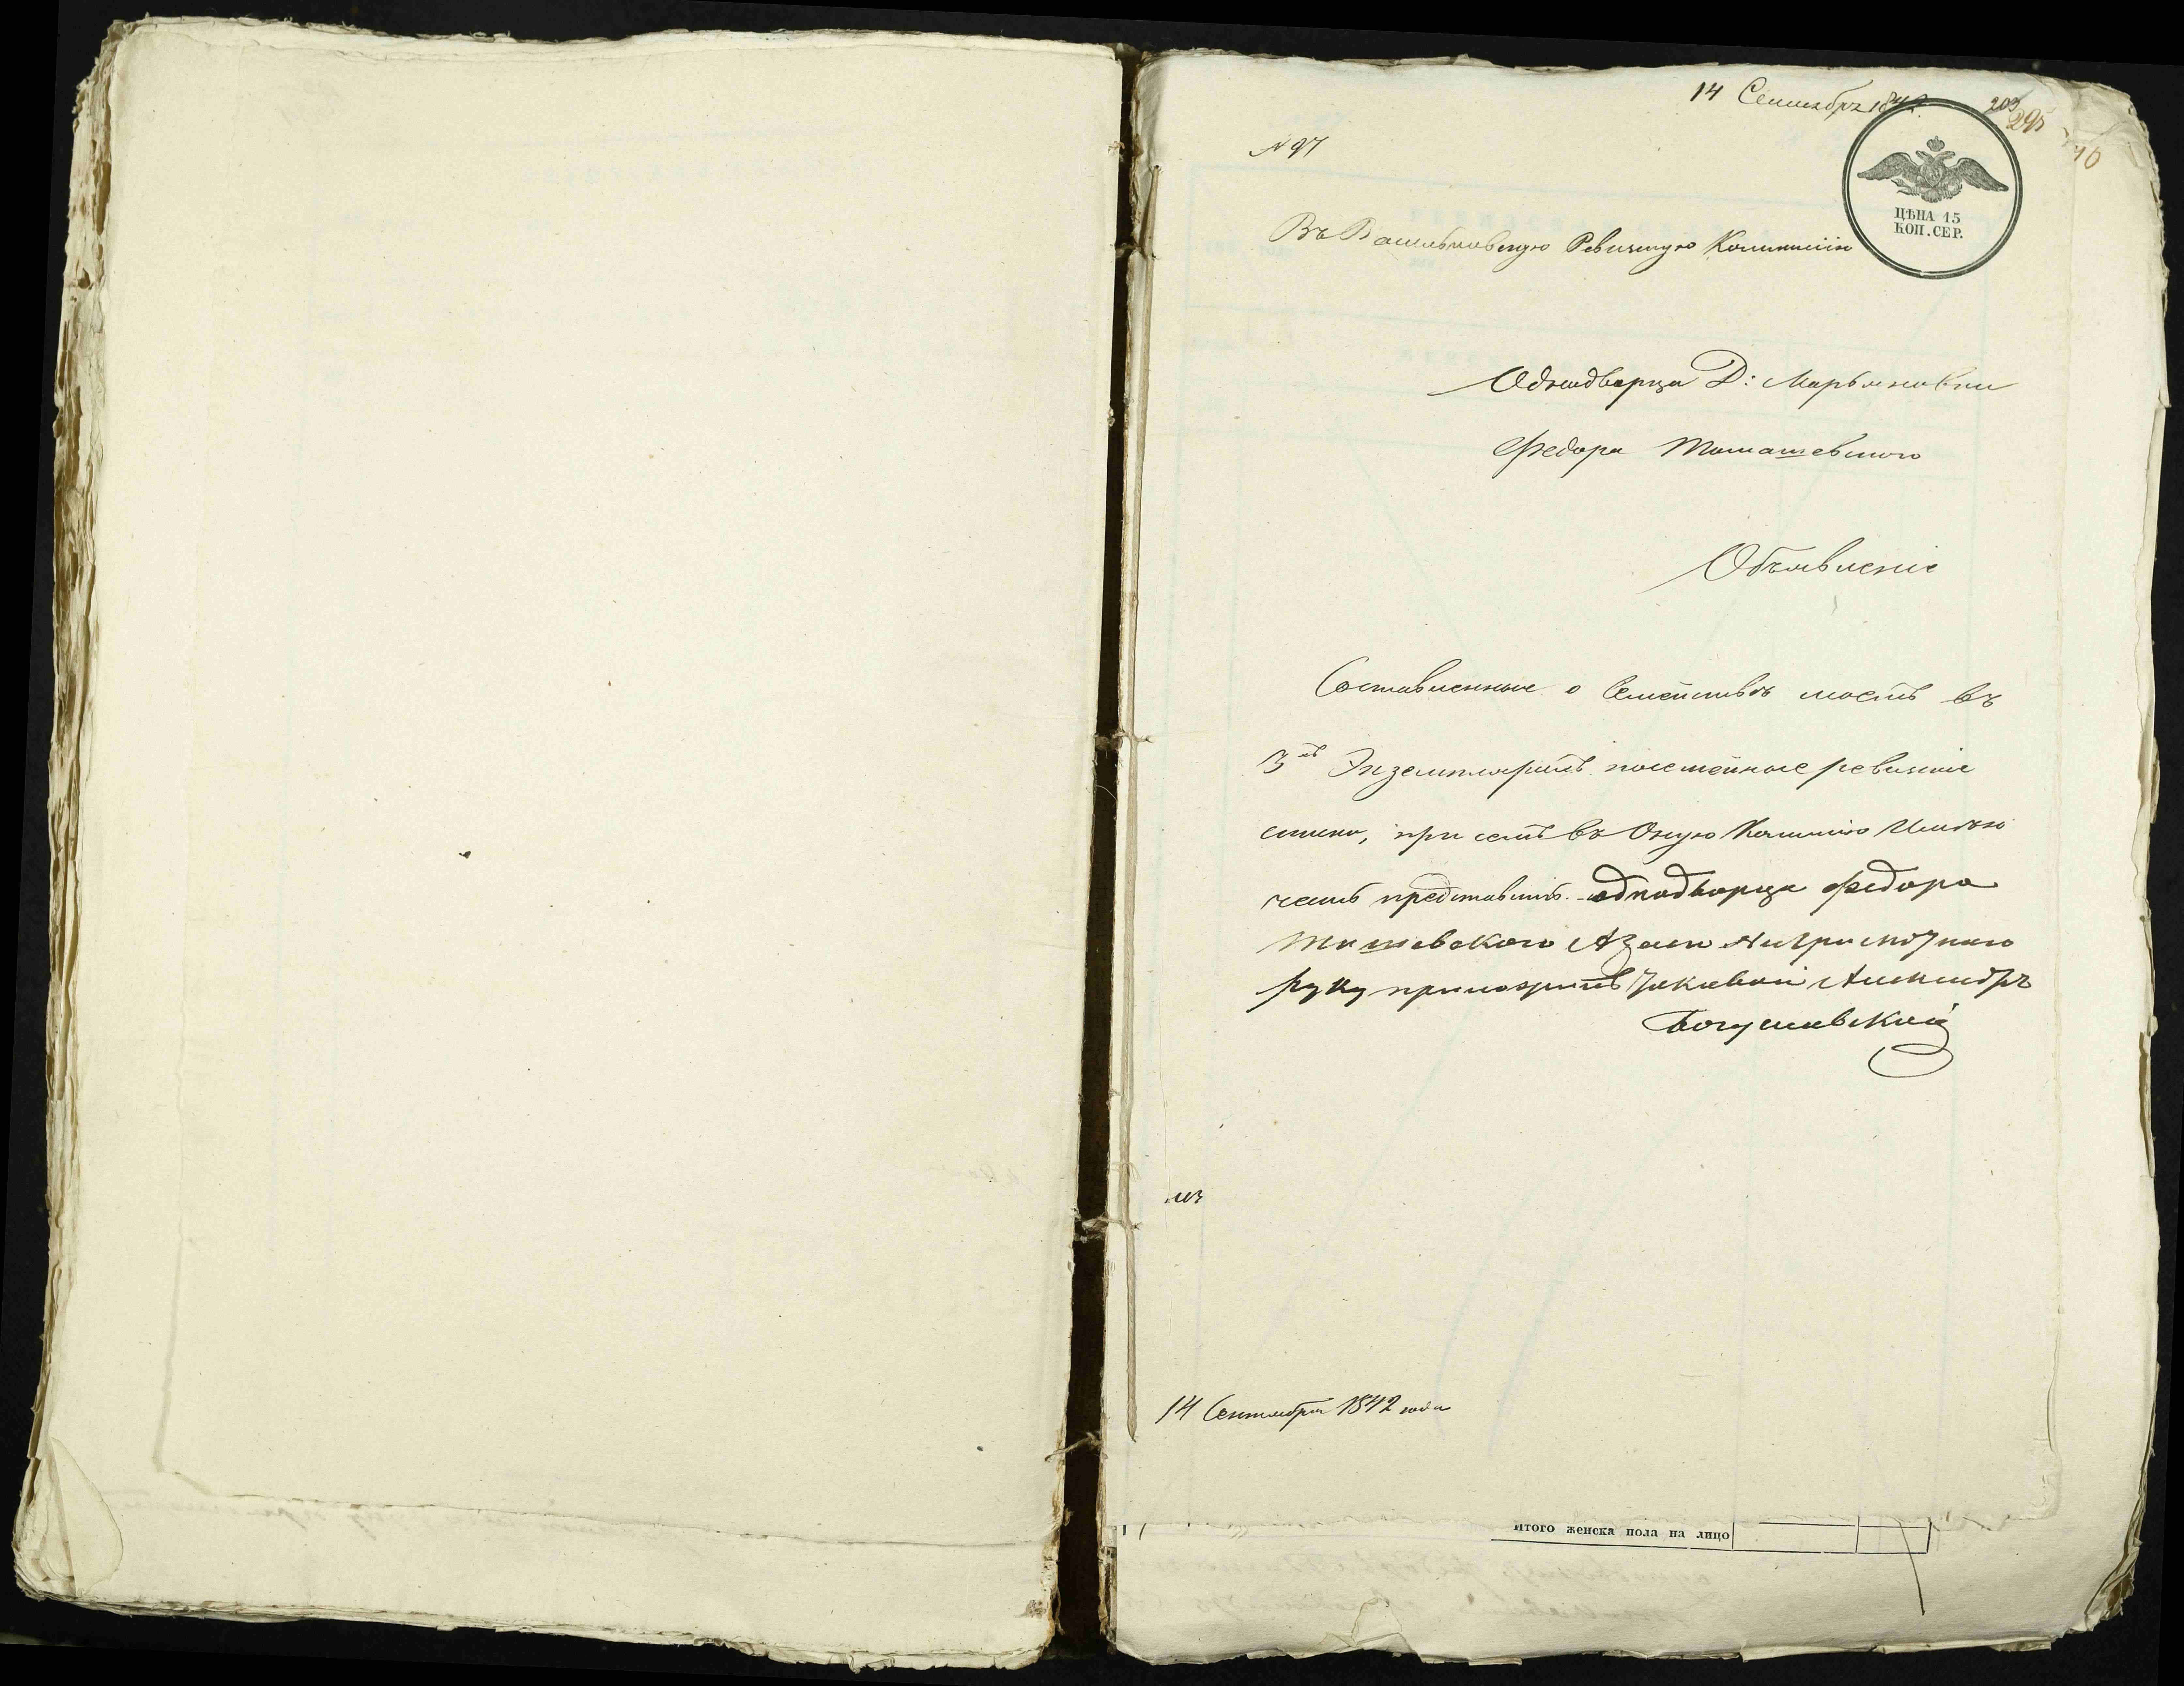 14 Сентября 1842
203
295
10
N 97
ЦѢНА 15
КОП. СЕР.
Въ Васильковскую Ревизскую Коммиссію
Однодворца Д: Марьяновки
Федора Томашевского
Объявленіе
Составленные о Семействѣ моемъ въ
3хъ Экземплярахъ посемейные ревизкіе
скаски, при семъ въ Оную Комисию Имѣю
честь представить. однодворца Федора
Руку приложилъ Александръ
14 Сентября 1842 года
Итого женска пола на лицо